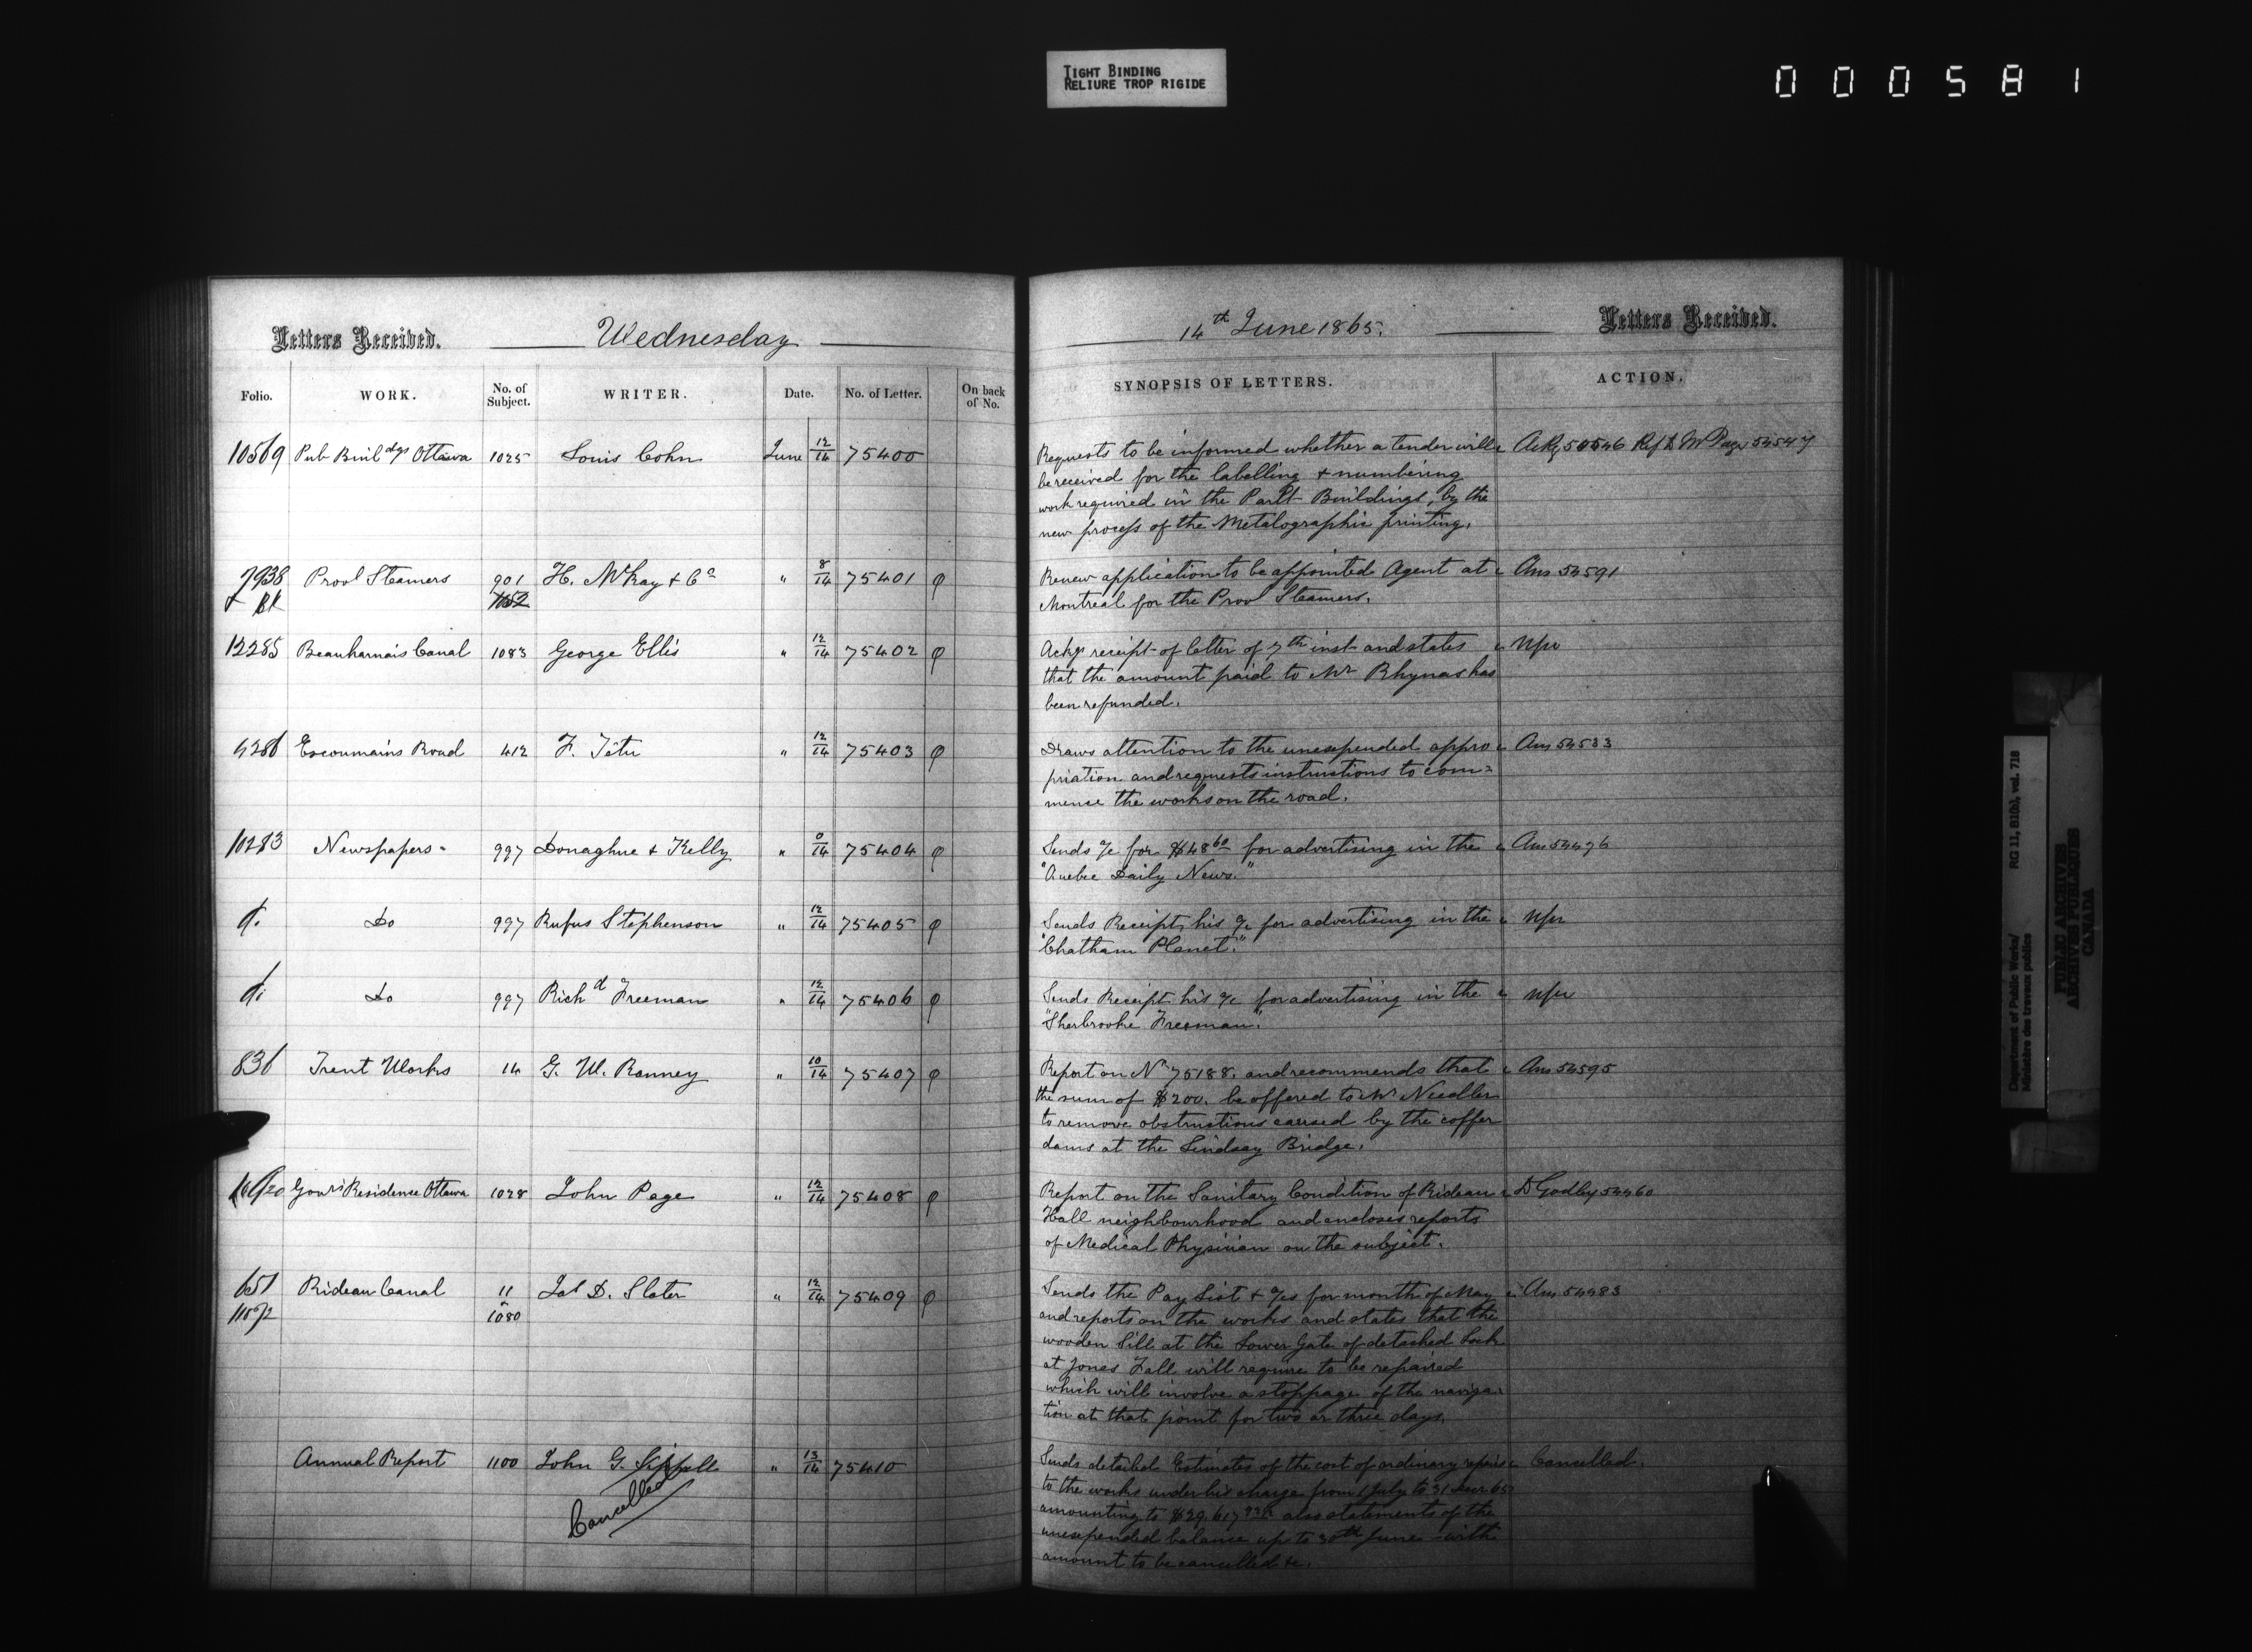 TIGHT BINDING
RELIURE TROP RIGIDE
000581
Letters Received. Wednesday
14th June 1865. Letters Received.
Folio. WORK. No. of Subject. WRITER. Date. No. of Letter. On back of No.
SYNOPSIS OF LETTERS. ACTION.
10569 Pub Buildgs Ottawa 1025 Louis Cohn June 12/14 75400
Requests to be informed whether a tender will Ackg 54546 Ref to Mr Page 54547
be received for the labelling & numbering
work required in the Parlt Buildings, by the
new process of the Metalographic printing.
7938 Provl Steamers 901 H. McKay & Co " 8/14 75401
& BK 1052
Renew application to be appointed Agent at Ans 54591
Montreal for the Provl Steamers.
12285 Beauharnais Canal 1083 George Ellis " 12/14 75402
Ackgs receipt of letter of 7th inst and states
that the amount paid to Mr Rhynas has
been refunded.
Escoumains Road 412 F. Têtu " 12/14 75403
Draws attention to the unexpended appro Ans 54533
priation and requests instructions to com=
mence the works on the road.
10283 Newspapers 997 Donaghue & Kelly " 75404
Sends a/c for $48 60 for advertising in the Ans 54496
"Quebec Daily News."
do Do 997 Rufus Stephenson " 12/14 75405
Sends Receipt, his a/c for advertising in the
"Chatham Planet."
do Do 997 Richd Freeman " 12/14 75406
Sends Receipt his a/c for advertising in the
"Sherbrooke Freeman."
836 Trent Works 14 G. W. Ranney " 10/14 75407
Report on No 75188. and recommends that Ans 54595
the sum of $200. be offered to Mr Needler
to remove obstructions caused by the coffer
dams at the Lindsay Bridge.
Govrs Residence Ottawa 1028 John Page " 12/14 75408
Report on the Sanitary Condition of Rideau D Godley 54460
Hall neighbourhood and encloses reports
of Medical Physician on the subject.
651 Rideau Canal 11 Jas D. Slater " 12/14 75409
1080
Sends the Pay List & a/cs for month of May Ans 54483
and reports on the works and states that the
wooden Sill at the Lower Gate of detached Lock
at Jones Fall will require to be repaired
which will involve a stoppage of the naviga-
tion at that point for two or three days.
Annual Report 1100 John G. Sippell " 13/14 75410
Cancelled
Sends detailed Estimates of the cost of ordinary repairs Cancelled.
to the works under his charge from 1 July to 31 Decr 65
amounting to $29,617 also statements of the
unexpended balance up to 30th June with
amount to be cancelled &c.
Department of Public Works/ RG 11, B1(b), vol. 718
Ministère des travaux publics
PUBLIC ARCHIVES
ARCHIVES PUBLIQUES
CANADA